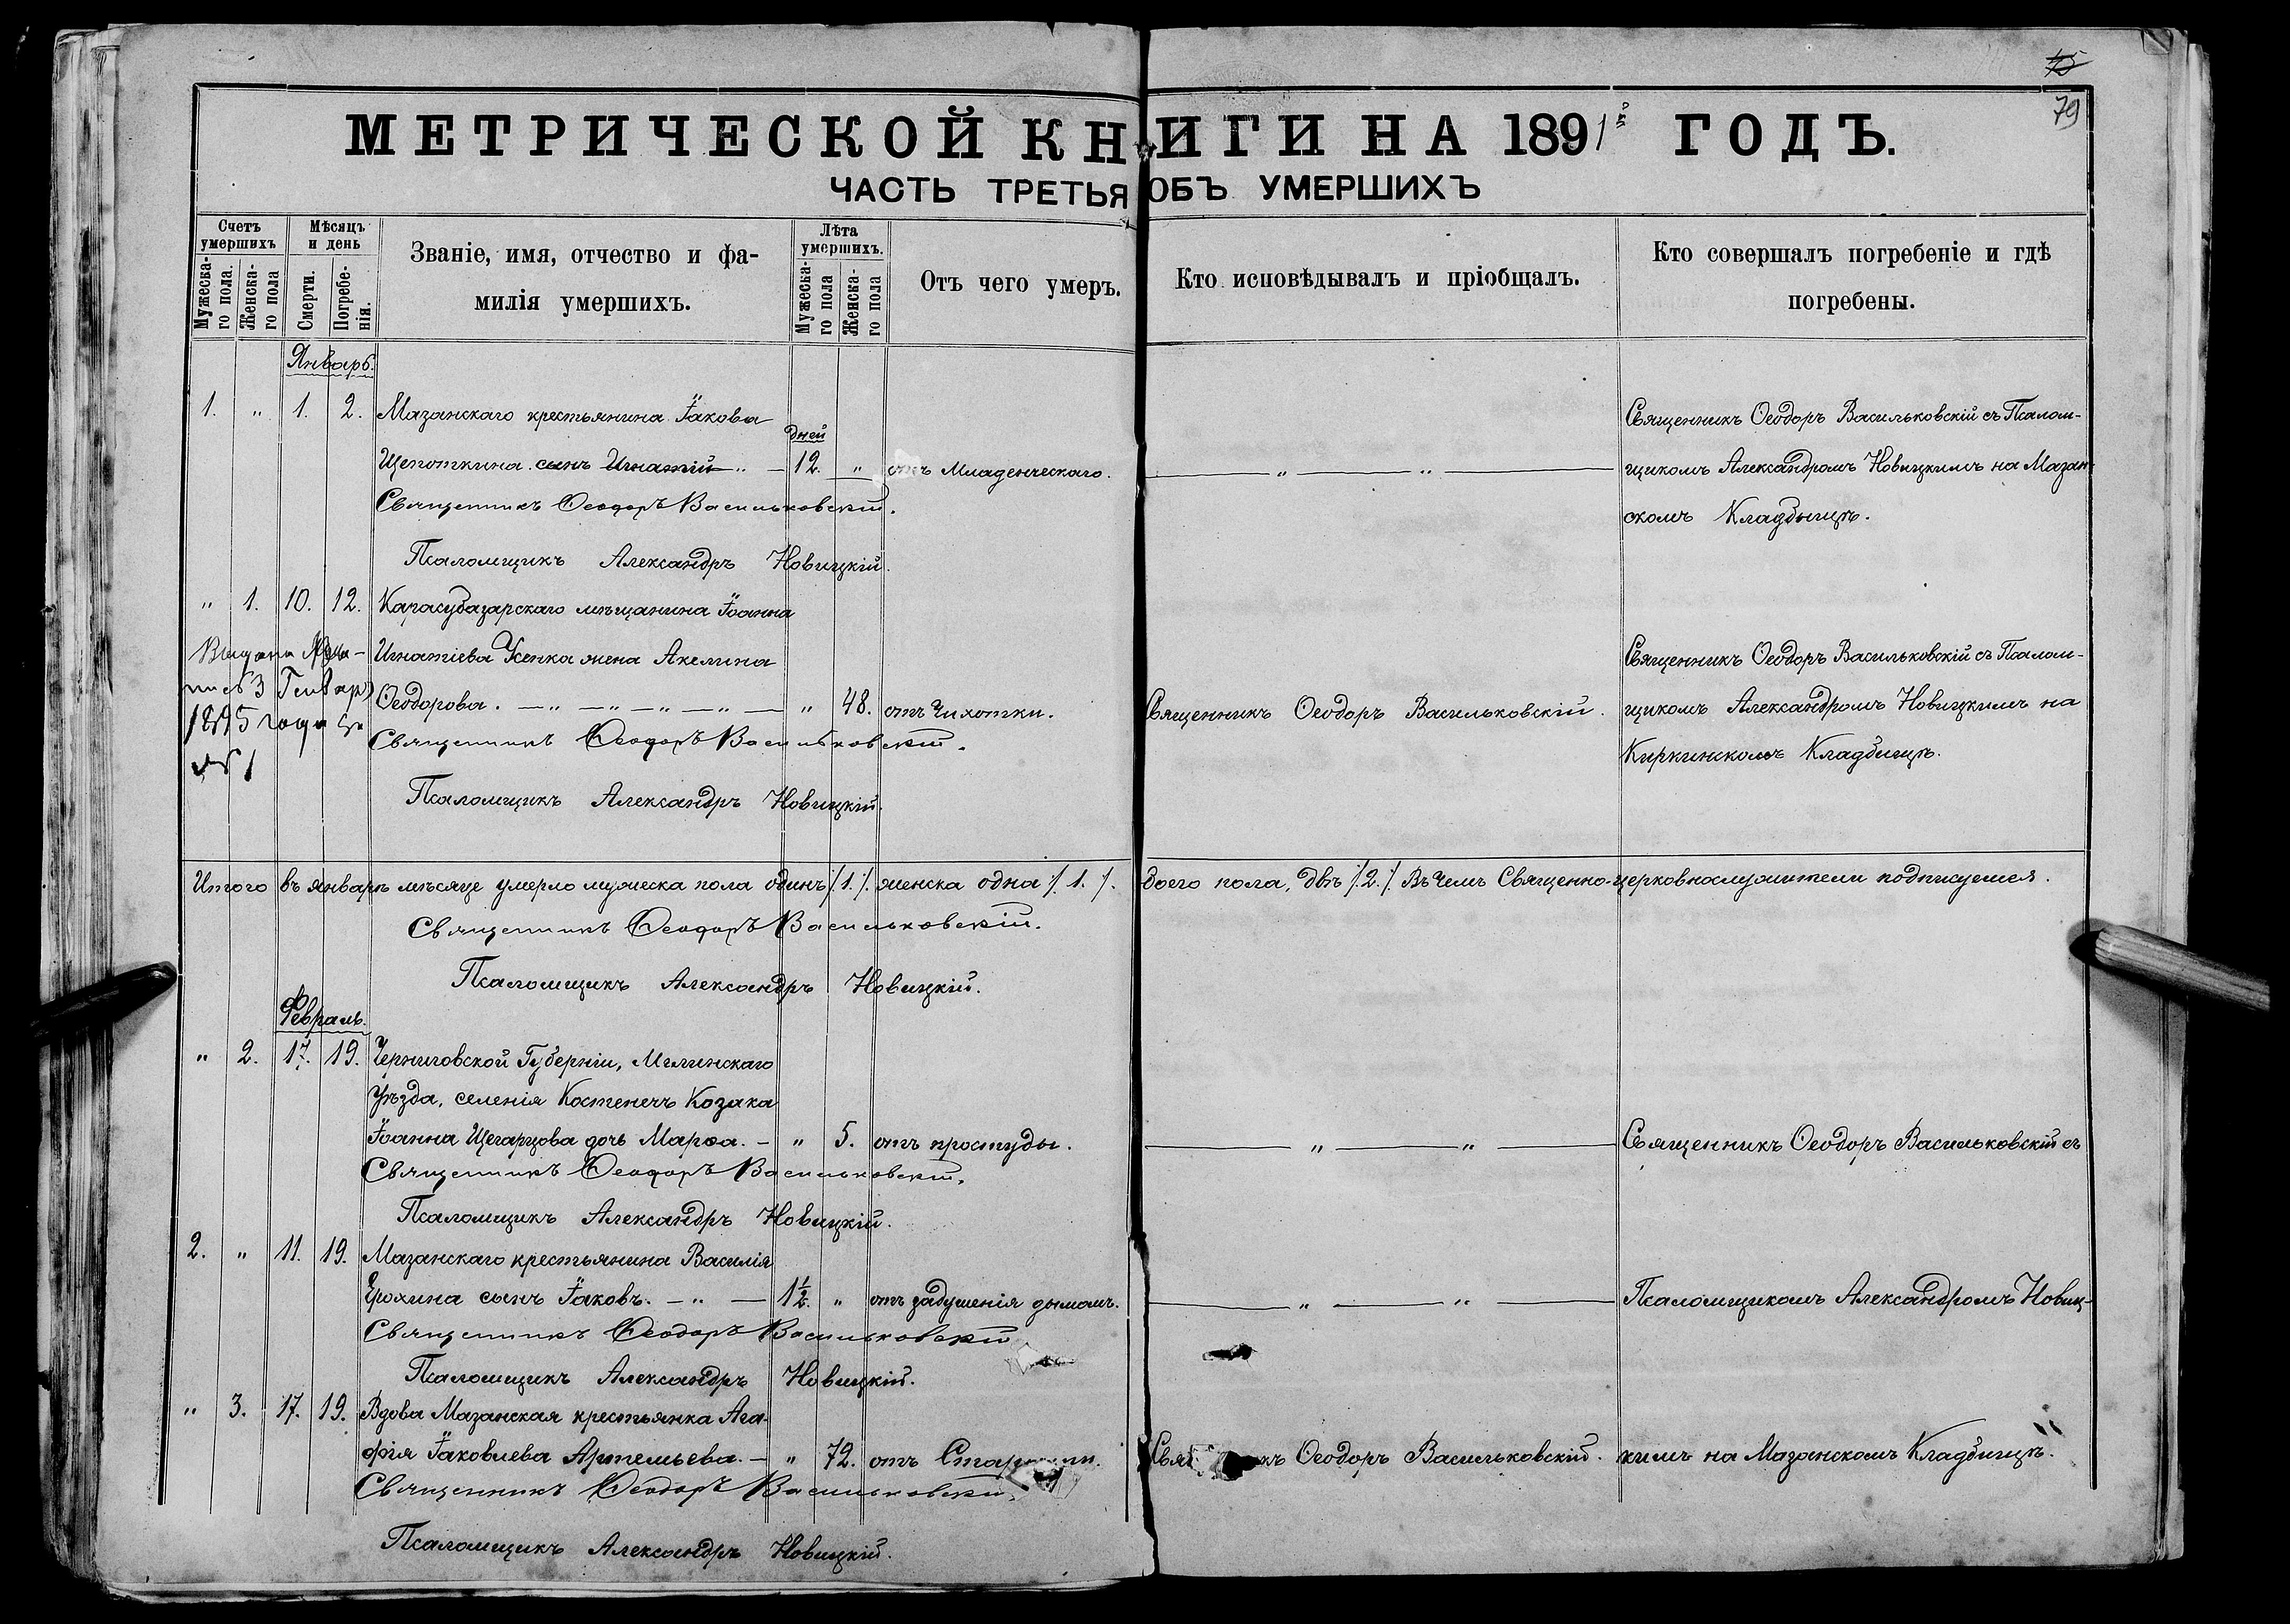 75
79
МЕТРИЧЕСКОЙ КНИГИ НА 1891й ГОДЪ.
ЧАСТЬ ТРЕТЬЯ ОБЪ УМЕРШИХЪ
Счетъ умершихъ
Мужеска-го пола.
Женска-го пола
Мѣсяцъ и день
Смерти.
Погребе-нія.
Званіе, имя, отчество и фа-
милія умершихъ.
Лѣта умершихъ.
Мужеска-го пола
Женска-го пола
Отъ чего умеръ.
Кто исповѣдывалъ и пріобщалъ.
Кто совершалъ погребеніе и гдѣ
погребены.
Январь.
1. " 1. 2. Мазанскаго крестьянина Іакова
Щепоткина сынъ Игнатій " — дней 12. " отъ Младенческаго. — " — " —
Священникъ Ѳеодоръ Васильковскій.
Псаломщикъ Александръ Новицкій.
Священникъ Ѳеодоръ Васильковскій съ Псалом-
щикомъ Александромъ Новицкимъ на Мазан-
скомъ Кладбищѣ.
" 1. 10. 12. Карасубазарскаго мѣщанина Іоанна
Игнатіева Усенка жена Акелина
Ѳеодорова. — " — " — " — " — " 48. отъ Чихотки. Священникъ Ѳеодоръ Васильковскій.
Священникъ Ѳеодоръ Васильковскій.
Псаломщикъ Александръ Новицкій.
1895 года за
№ 1
Священникъ Ѳеодоръ Васильковскій съ Псалом-
щикомъ Александромъ Новицкимъ на
Киркинскомъ Кладбищѣ.
Итого въ январѣ мѣсяце умерло мужеска пола одинъ /.1./. женска одна /.1./. обоего пола, двѣ /.2./. Въ Чемъ Священно-церковнослужители подписуемся.
Священникъ Ѳеодоръ Васильковскій.
Псаломщикъ Александръ Новицкій.
Февраль.
" 2. 17. 19. Черниговской Губерніи, Мглинскаго
Уѣзда, селенія Костеничъ Козака
Іоанна Щегарцова дочь Марѳа. — " 5. отъ простуды. — " — " — Священникъ Ѳеодоръ Васильковскій съ
Священникъ Ѳеодоръ Васильковскій.
Псаломщикъ Александръ Новицкій.
2. " 11. 19. Мазанскаго крестьянина Василія
Ерохина сынъ Іаковъ. — " — 1½. " отъ задушенія дымомъ. — " — " — Псаломщикомъ Александромъ Новиц-
Священникъ Ѳеодоръ Васильковскій
Псаломщикъ Александръ Новицкій.
" 3. 17. 19. Вдова Мазанская крестьянка Ага-
фія Іаковлева Артемьева. — " 72. отъ Ѳеодоръ Васильковскій. кимъ на Мазанскомъ Кладбищѣ.
Священникъ Ѳеодоръ Васильковскій.
Псаломщикъ Александръ Новицкій.